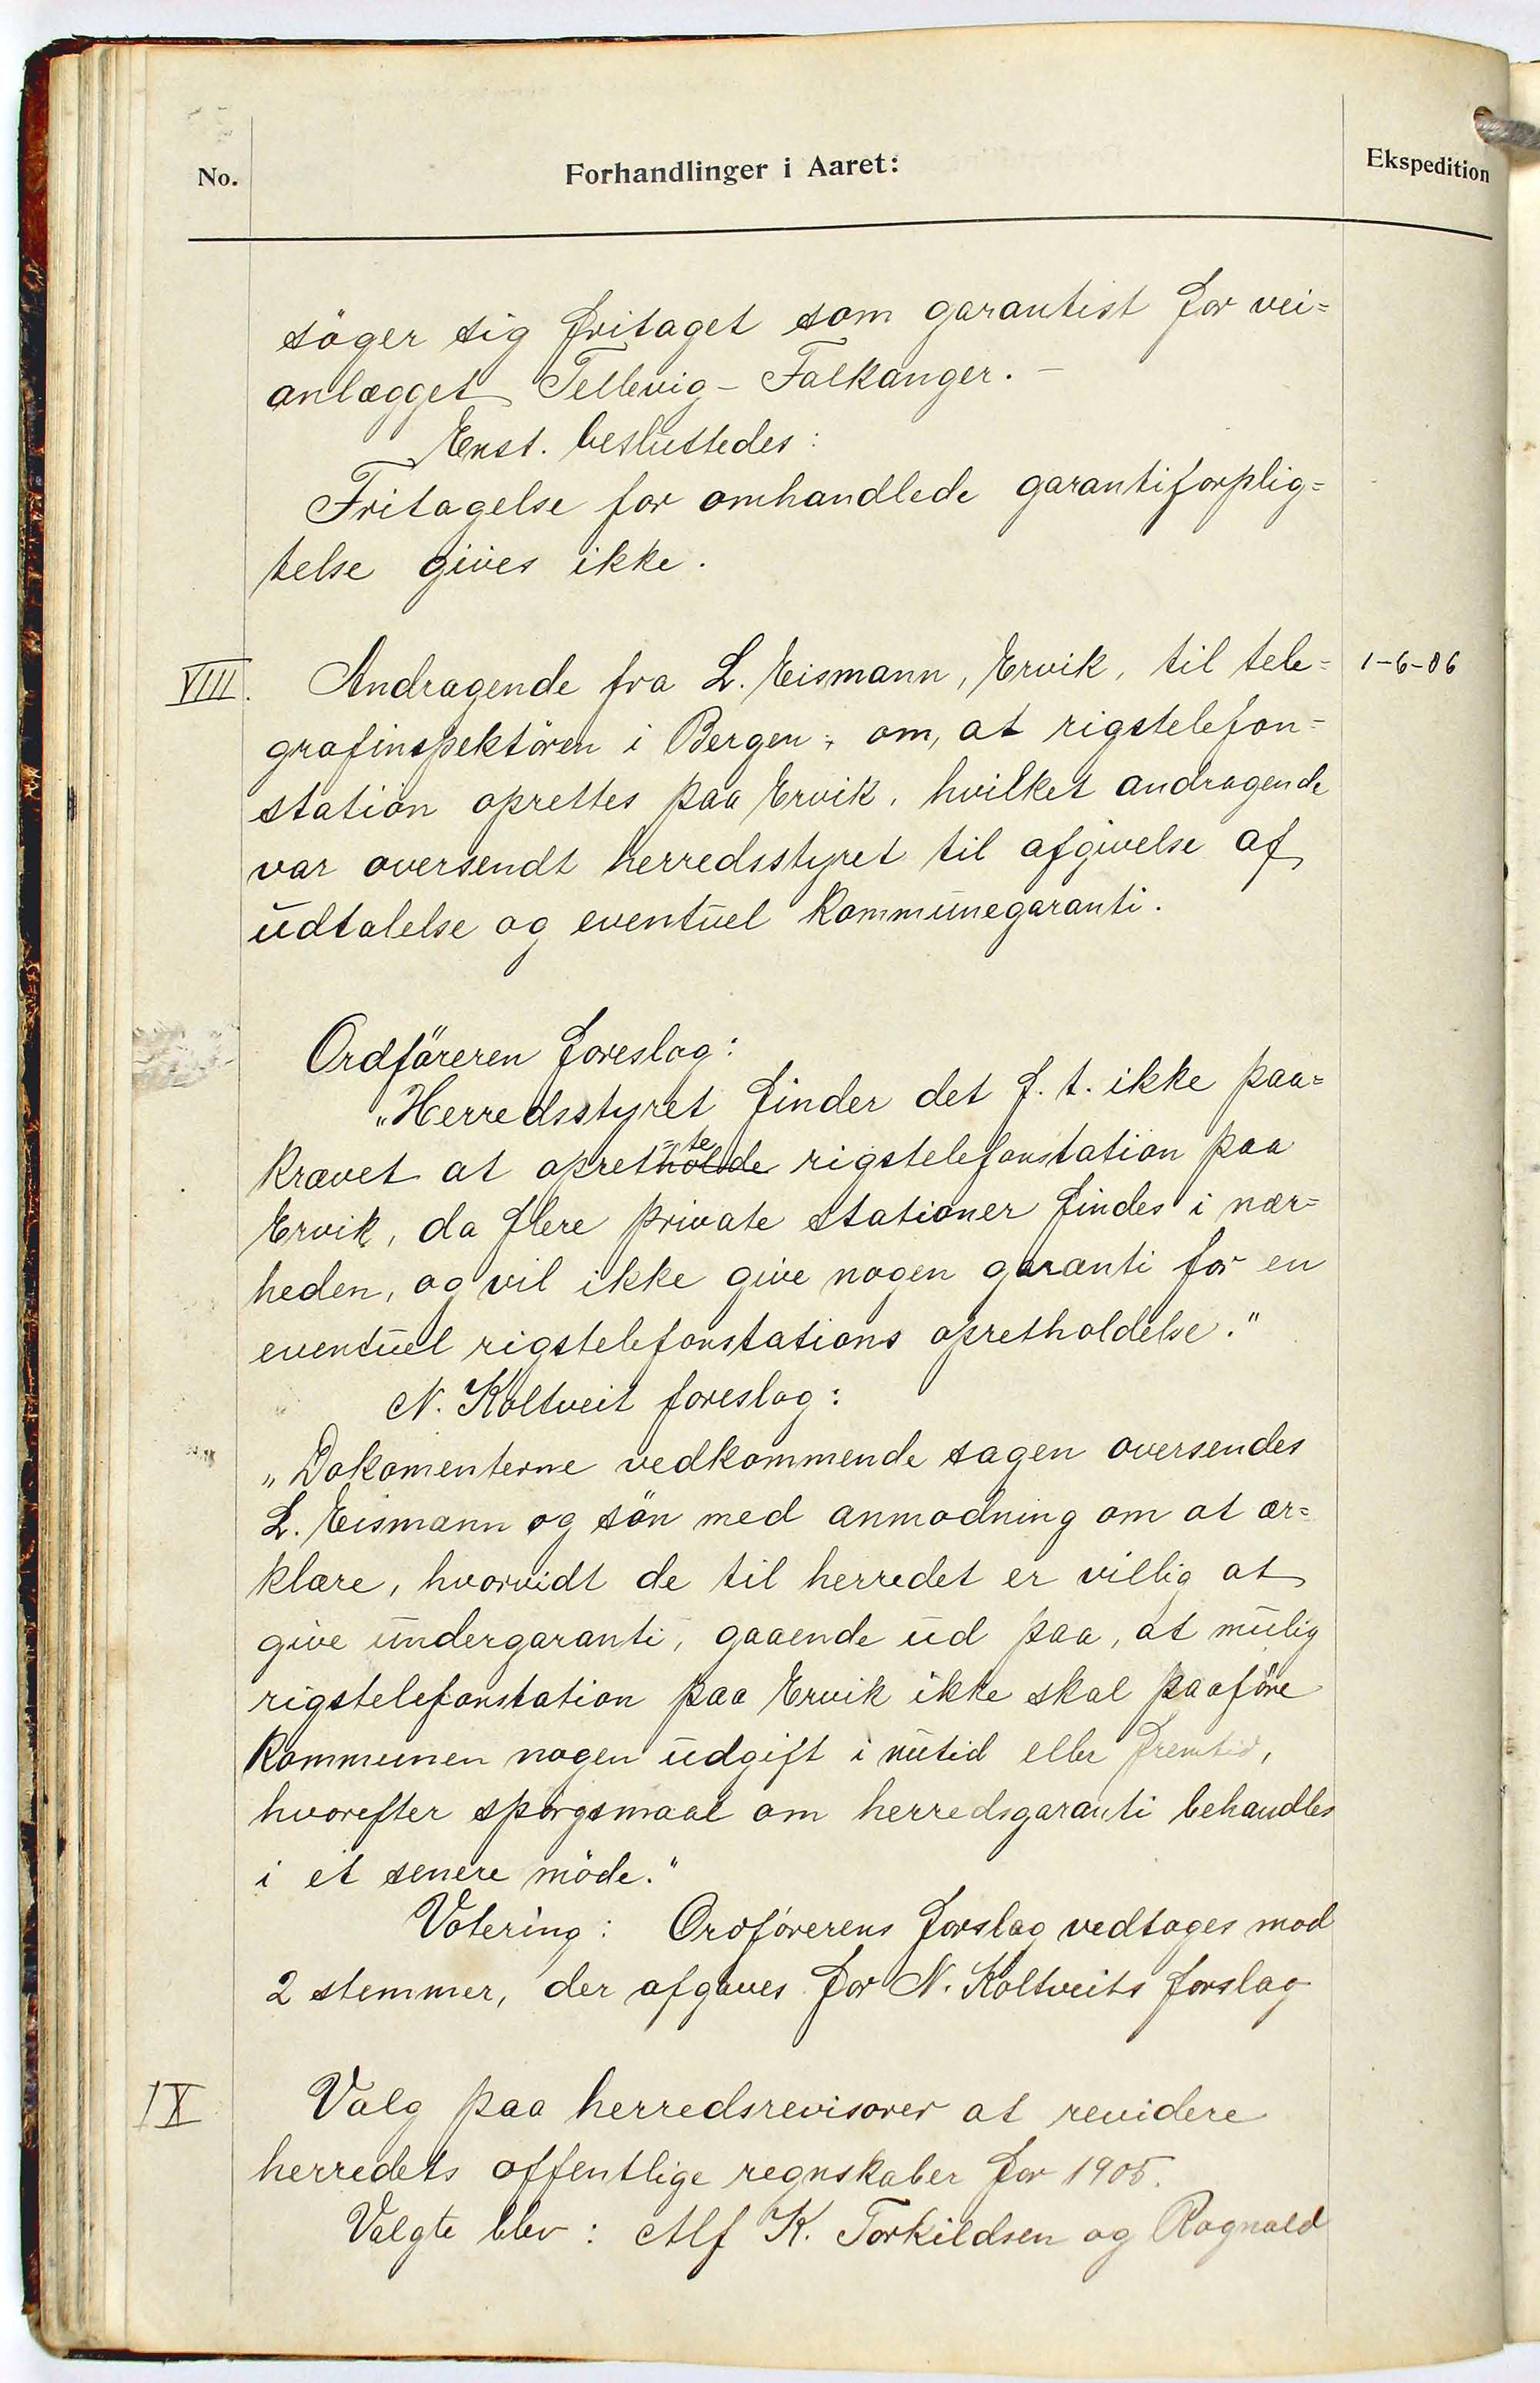 No.
Forhandlinger i Aaret:
Ekspedition
söger sig fritaget som garantist for vei=
anlægget Tellevig - Falkanger. -
Enst. besluttedes:
Fritagelse for omhandlede garantiforplig=
telse gives ikke.
VIII. Andragende fra L. Eismann, Ervik, til tele= 1-6-06
grafinspektören i Bergen, om, at rigstelefon=
station oprettes paa Ervik, hvilket andragende
var oversendt herredsstyret til afgivelse af
udtalelse og eventuel kommunegaranti.
Ordföreren foreslog:
"Herredsstyret finder det f. t. ikke paa=
=te
krævet at opretholde rigstelefonstation paa
Ervik, da flere private stationer findes i nær=
heden, og vil ikke give nogen garanti for en
eventuel rigstelefonstations opretholdelse."
N. Koltveit foreslog:
"Dokomenterne vedkommende sagen oversendes
L. Eismann og sön med anmodning om at ær=
klære, hvorvidt de til herredet er villig at
give undergaranti, gaaende ud paa, at mulig
rigstelefonstation paa Ervik ikke skal paaföre
kommunen nogen udgift i nutid eller fremtid,
hvorefter spörgsmaal om herredsgaranti behandles
i et senere möde."
Votering: Ordförerens forslag vedtoges mod
2 stemmer, der afgaves for N. Koltveits forslag
IX Valg paa herredsrevisorer at revidere
herredets offentlige regnskaber for 1905.
Valgte blev: Alf K. Torkildsen og Ragnald